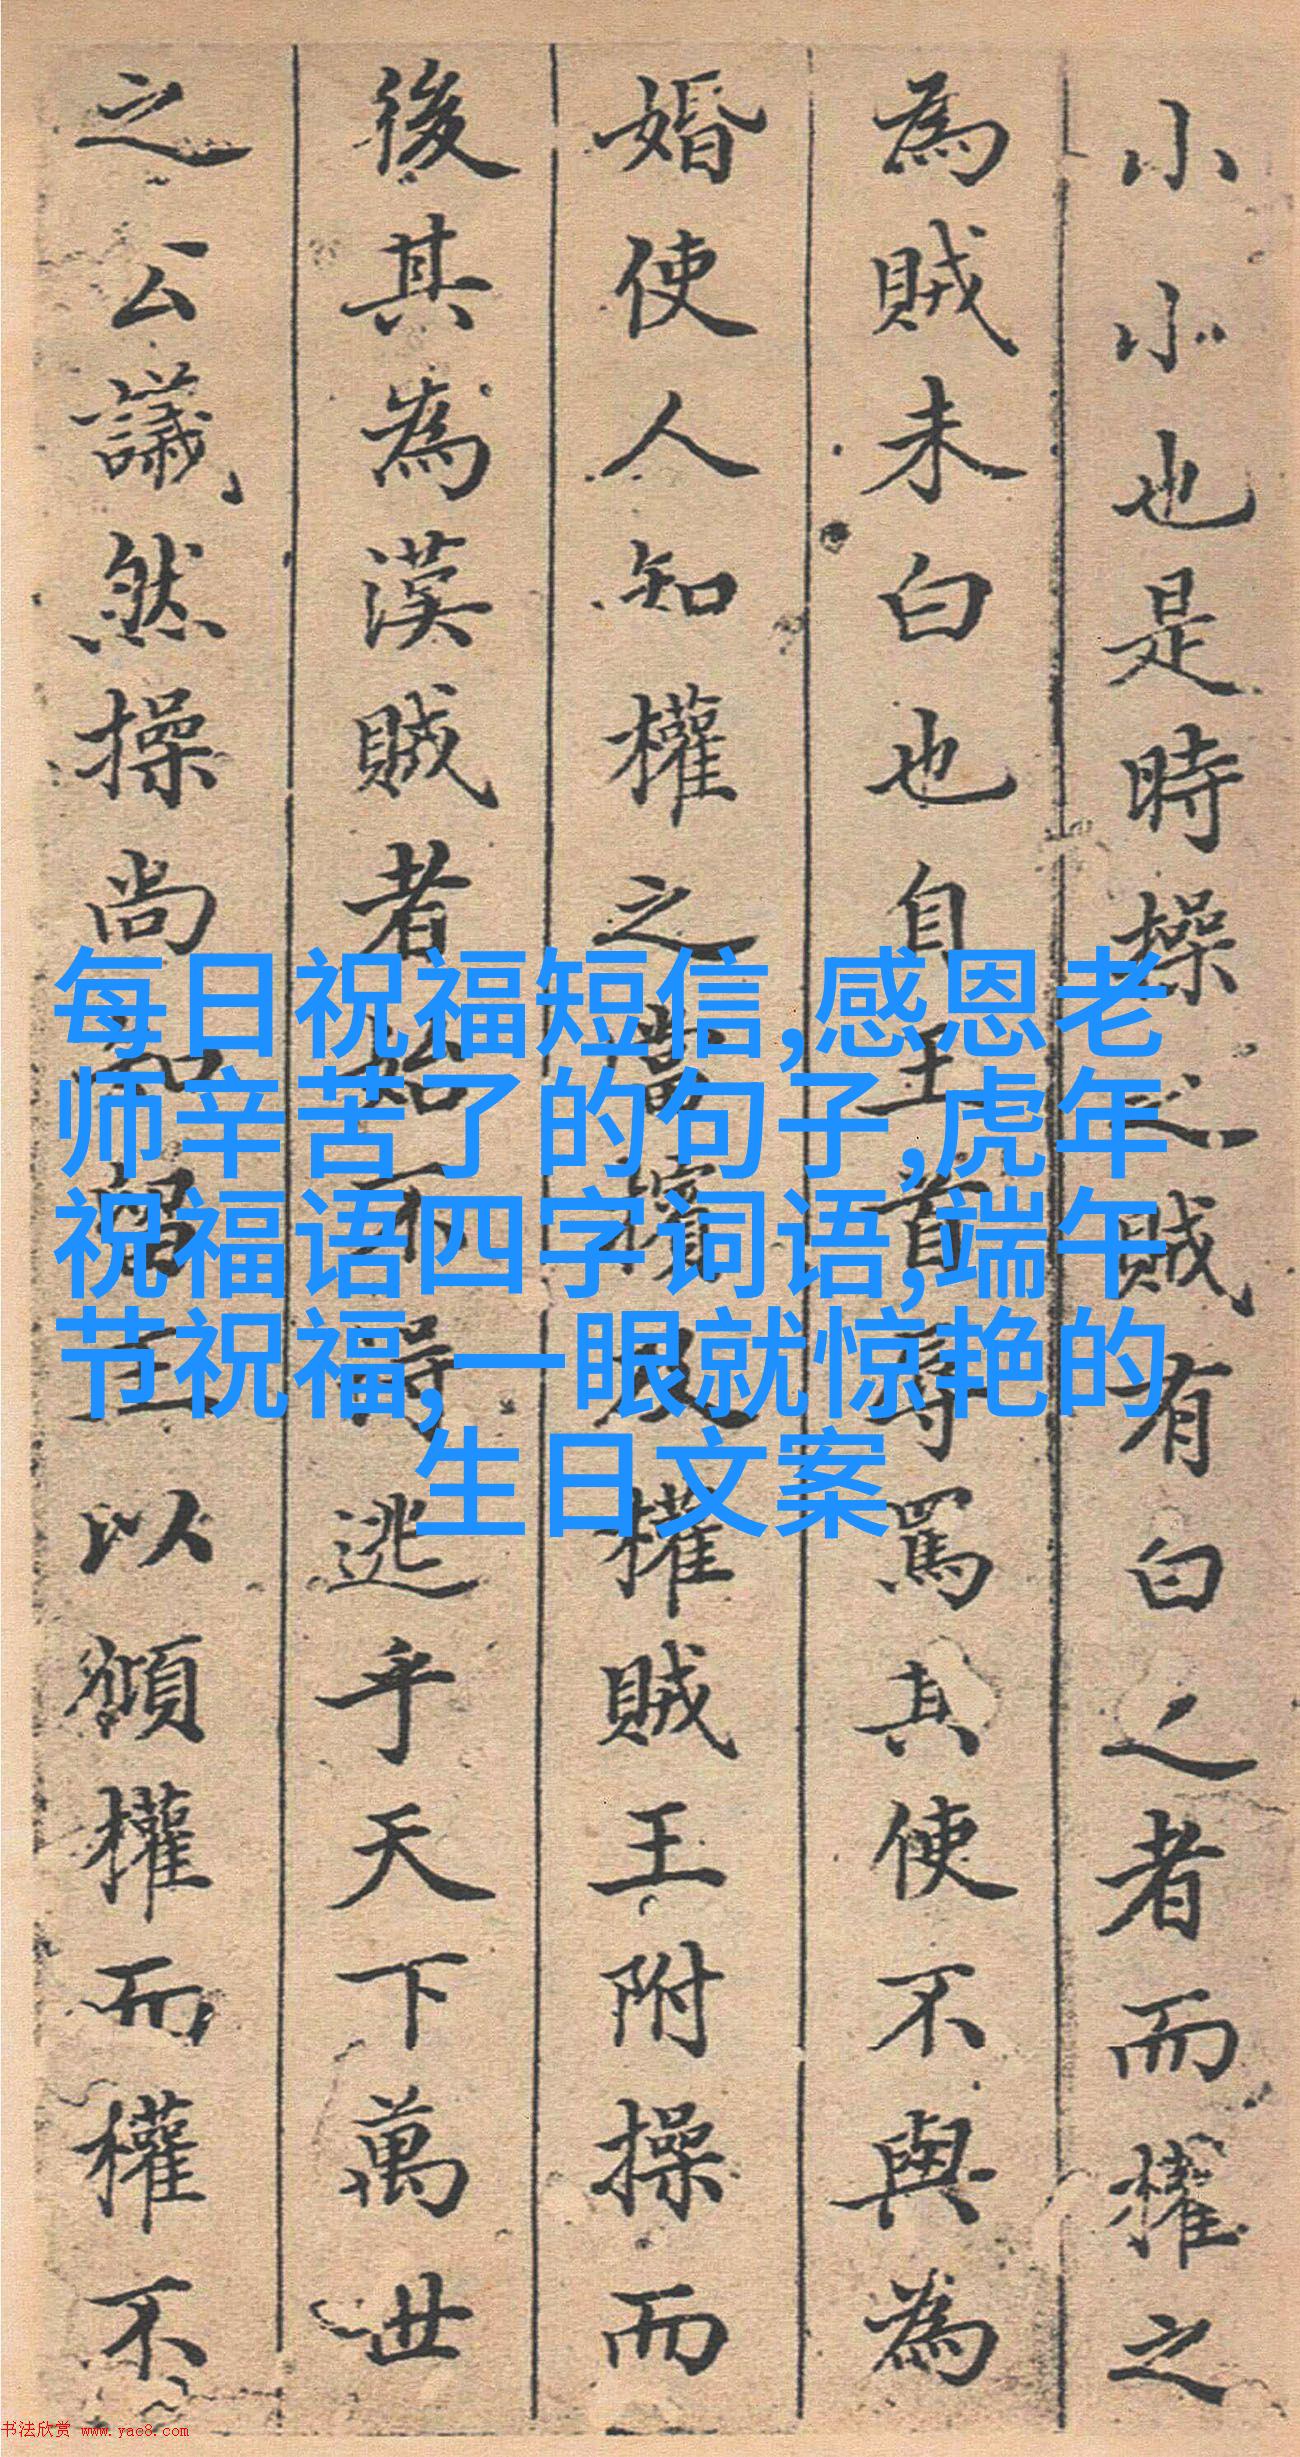 小小也是時操之賊有白之者而權之
為賊未白也自王首辱罵其使不與為
婚使人知權之當擯及權賊王附操而
後其為漢賊者始不得逃乎天下萬世
之公議然操尚知王以權而權不
每日祝福短信,感恩老
师辛苦了的句子,虎年
祝福语四字词语,端午
节祝福,一眼就惊艳的
生日文案
书法欣赏 www.yac8.com